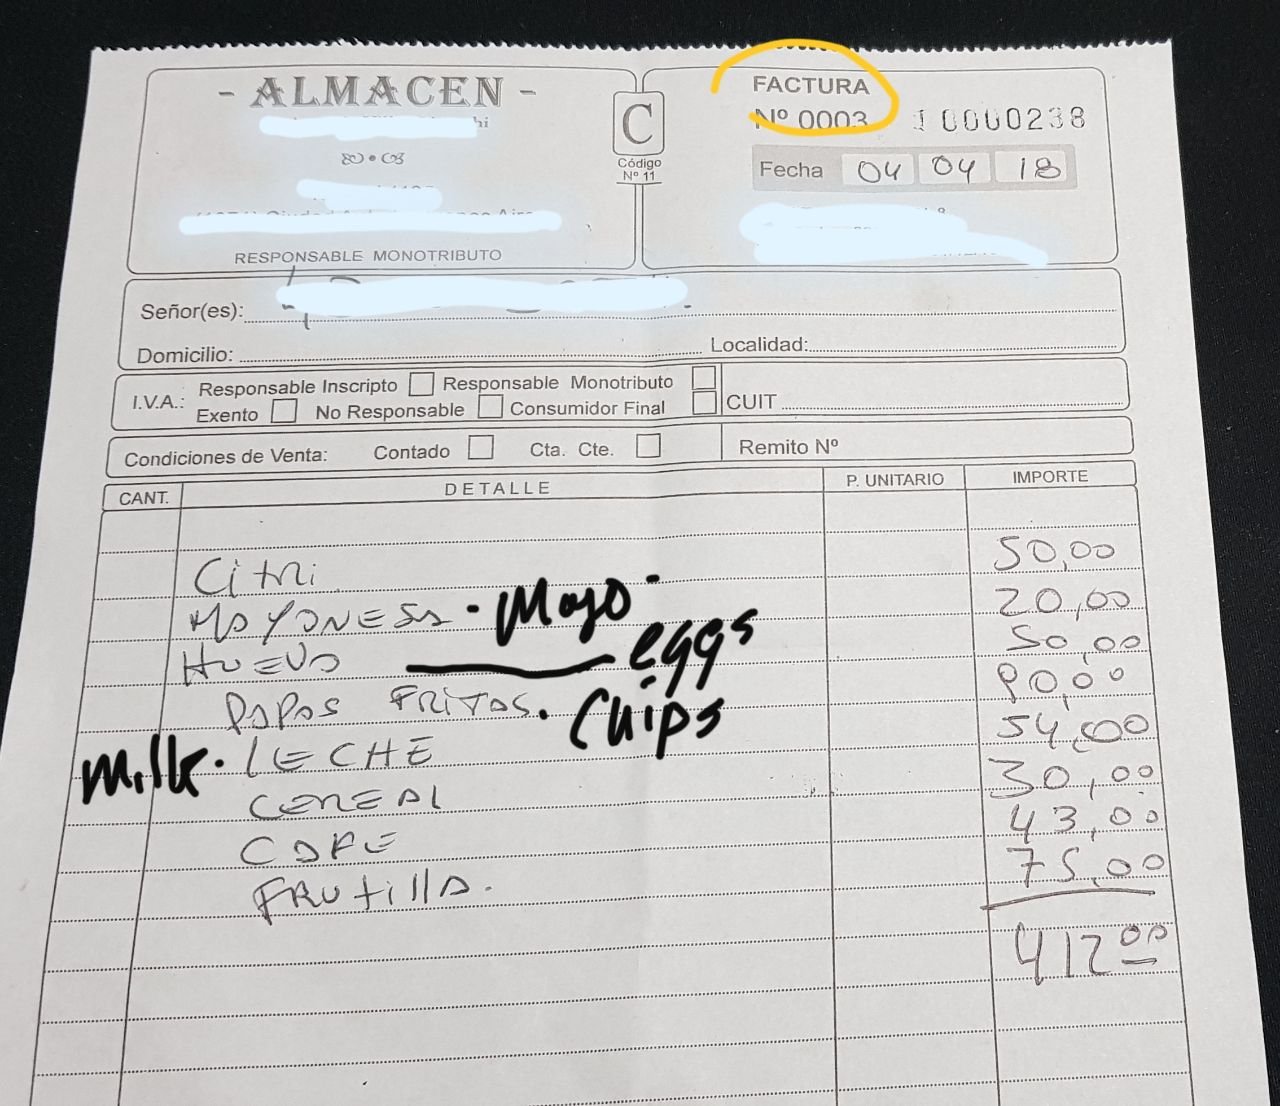 - ALMACEN -
C
Código
Nº 11
RESPONSABLE MONOTRIBUTO
FACTURA
Nº 0003 10000238
Fecha 04 04 18
Señor(es):
Domicilio: Localidad:
I.V.A.: Responsable Inscripto Responsable Monotributo
Exento No Responsable Consumidor Final CUIT
Condiciones de Venta: Contado Cta. Cte. Remito Nº
CANT. DETALLE P. UNITARIO IMPORTE
Citri 50,00
MAYONESA - Mayo - 20,00
HUEVO eggs 50,00
PAPAS FRITAS. Chips 90,00
Milk. LECHE 54,00
CEREAL 30,00
CAFE 43,00
FRUtillA. 75,00
412 00